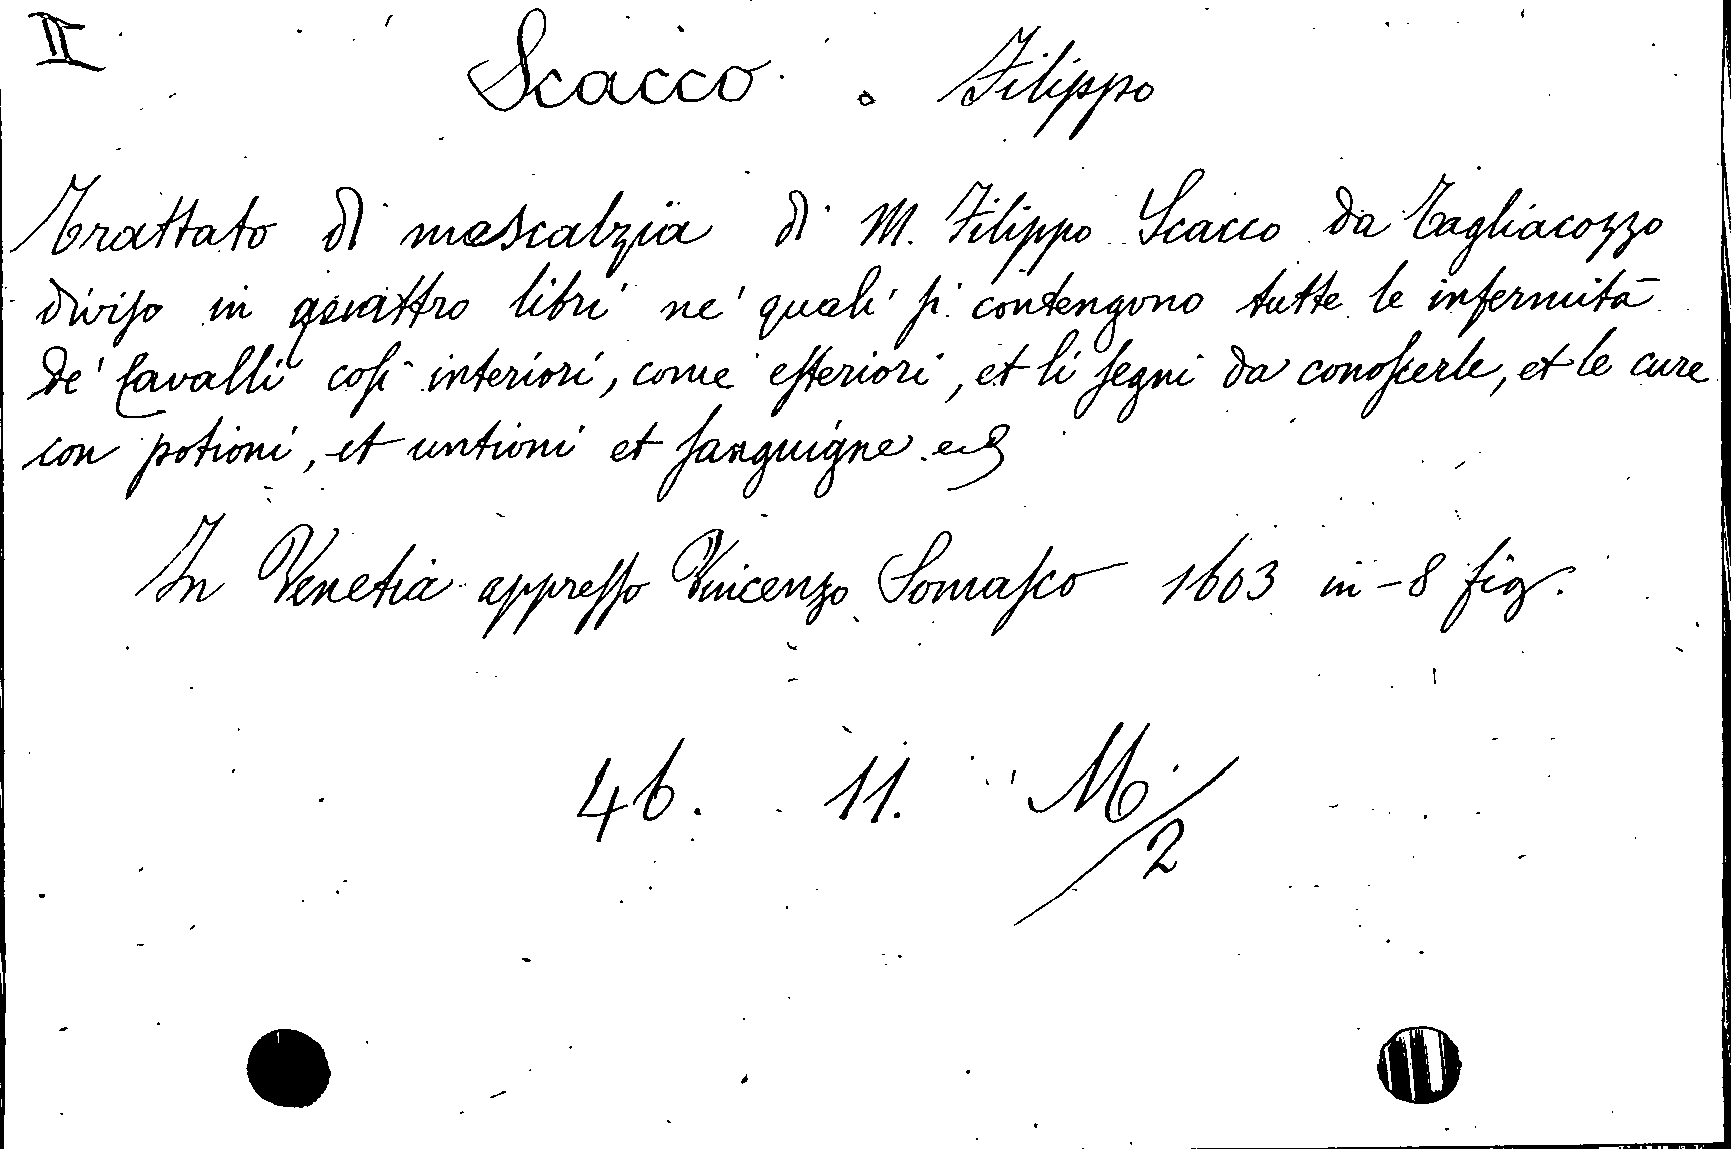 II
Scacco . Filippo
Trattato di mascalzia di M. Filippo Scacco da Tagliacozzo
diviſo in quattro libri ne' quali ſi contengono tutte le infermità
de' Cavalli coſi interiori, come eſteriori, et li ſegni da conoſcerle, et le cure
con potioni, et untioni et ſanguigne
In Venetia appreſſo Vincenzo Somaſco 1603 in-8 fig.
46. 11. M/2